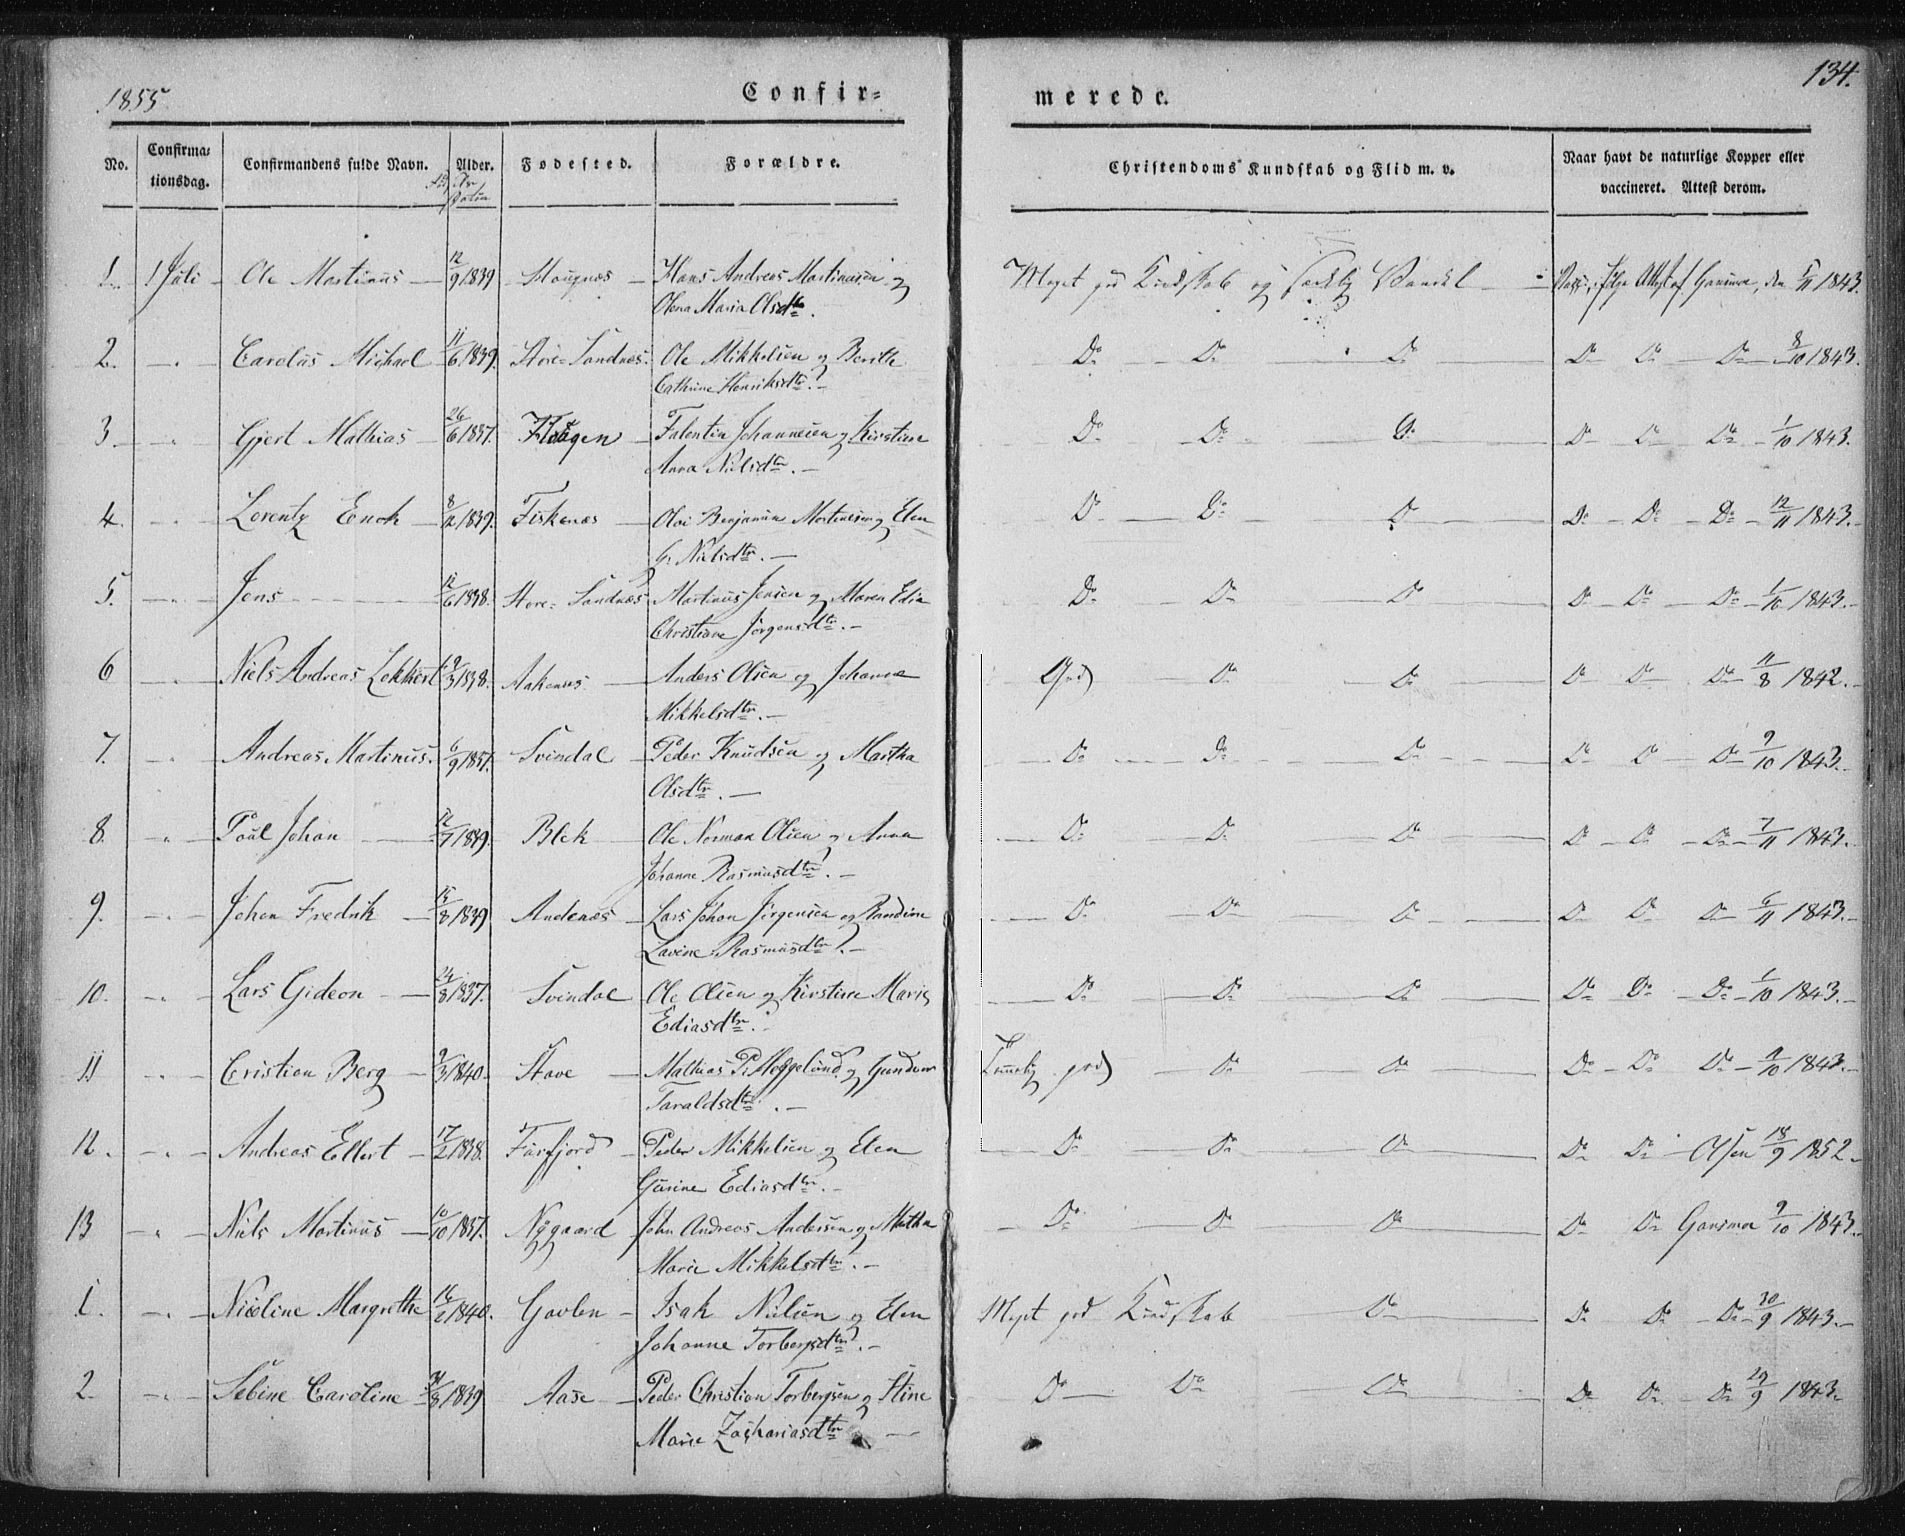 1855
Confir=
merede.
134.
No.
Confirma=
tionsdag.
Confirmandens fulde Navn.
Alder.
Fødested.
Forældre.
Christendoms Kundskab og Flid m. v.
Naar havt de naturlige Kopper eller
vaccineret. Attest derom.
1. 1 Juli Ole Martinus 12/9 1839 Hans Andreas Martinussen og Meget god Kundskab og Vandel Attest af 5/11 1843.
Olena Maria Olsdtr.
2. " Carolus Michael 11/6 1839. Store-Sandnæs. Ole Mikkelsen og Berithe Do Do Do Do Do Do 8/10 1843.
Cathrine Henriksdtr.
3. " Gjert Mathias 26/6 1837. Falentin Johannesen og Kirstine Do Do Do Do Do Do 1/10 1843.
Anna Nielsdtr.
4. " Lorentz Enok 1839. Fiskenæs Benjamin Martinesen og Elen Do Do Do Do Do Do 12/11 1843.
G. Nielsdtr.
5. " Jens 12/6 1838. Store-Sandnæs Martinus Jensen og Maren Edia Do Do Do Do Do Do 1/10 1843.
Christiane Jørgensdtr.
6 " Niels Andreas 9/3 1838. Aakenæs Anders Olsen og Johanna God Do Do Do Do Do 11/8 1842.
Mikkelsdtr.
7. " Andreas Martinus. 6/9 1837. Svindal Peder Knudsen og Martha Do Do Do Do Do Do 9/10 1843.
Olsdtr.
8. " Paal Johan 1839. Blek Ole Norman Olsen og Anna Do Do Do Do Do Do 7/11 1843.
Johanne Rasmusdtr.
9. " Johan Fredrik 15/8 1839 Andenæs Lars Johan Jørgensen og Randine Do Do Do Do Do Do 6/11 1843.
Lavine Rasmusdtr.
10. " Lars Gideon 24/8 1837. Svindal Ole Olsen og Kirstine Marie Do Do Do Do Do Do 1/10 1843.
Ediasdtr.
11 " Cristian Berg 9/3 1840. Stave Mathias P. Meggelund og Taalig god Do Do Do Do Do 9/10 1843.
Taraldsdtr.
12. " Andreas Ellert 17/2 1838. Forfjord Peder Mikkelsen og Elen Do Do Do Do Do Olsen 18/9 1852.
Gurine Ediasdtr.
13 " Niels Martinus 10/10 1837. Nygaard John Andreas Andersen og Do Do Do Do Do 9/10 1843.
Marie Mikkelsdtr.
1. " Nicoline Margrethe 1840. Gavlen Isak Nielsen og Elen Meget god Kundskab Do Do Do Do 30/9 1843.
Johanne Torbergsdtr.
2. " Sebine Caroline 31/8 1839 Aase Peder Christian Torbergsen og Stine Do Do Do Do Do Do 29/9 1843.
Marie Zachariasdtr.